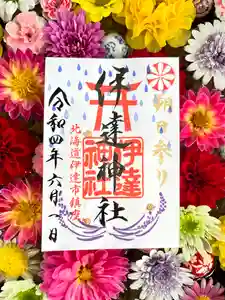 朔日参り
伊達神社
伊達
神社
北海道伊達市鎮座
令和四年六月一日